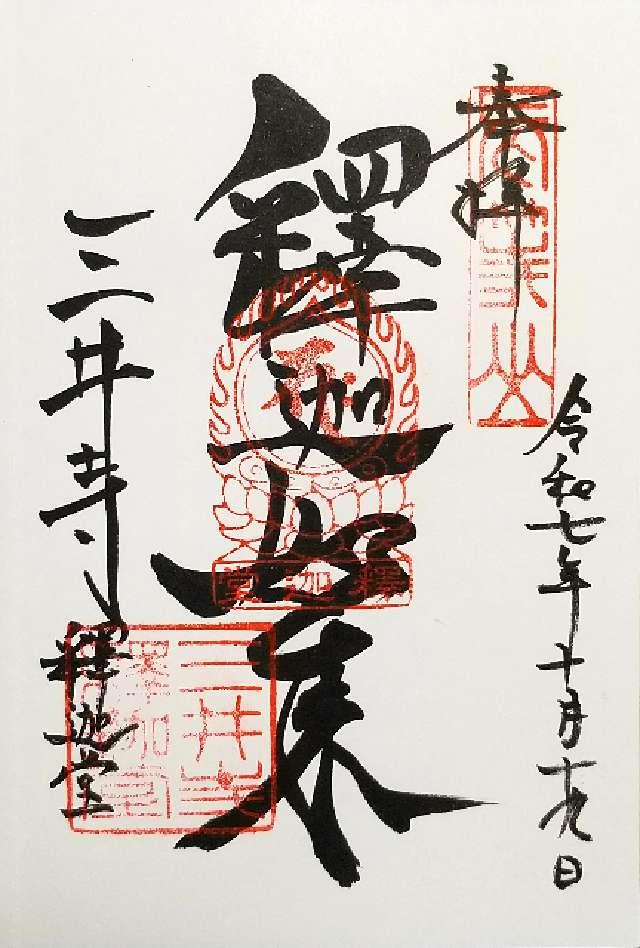 奉拝
令和七年十月十九日
釋迦如来
釋迦堂
三井寺
釋迦堂
三井寺
釋迦堂